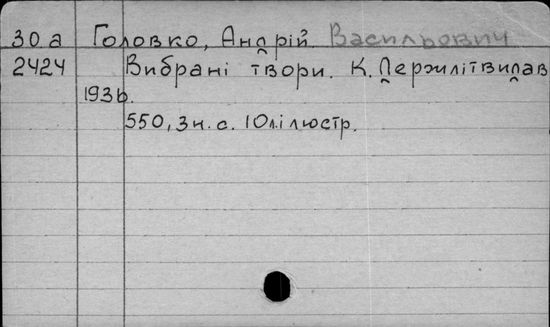 30 а Головко, Андрій Васильович
2424 Вибрані твори. К. Держлітвидав
1936.
550, 3 н. с. 10 л. ілюстр.